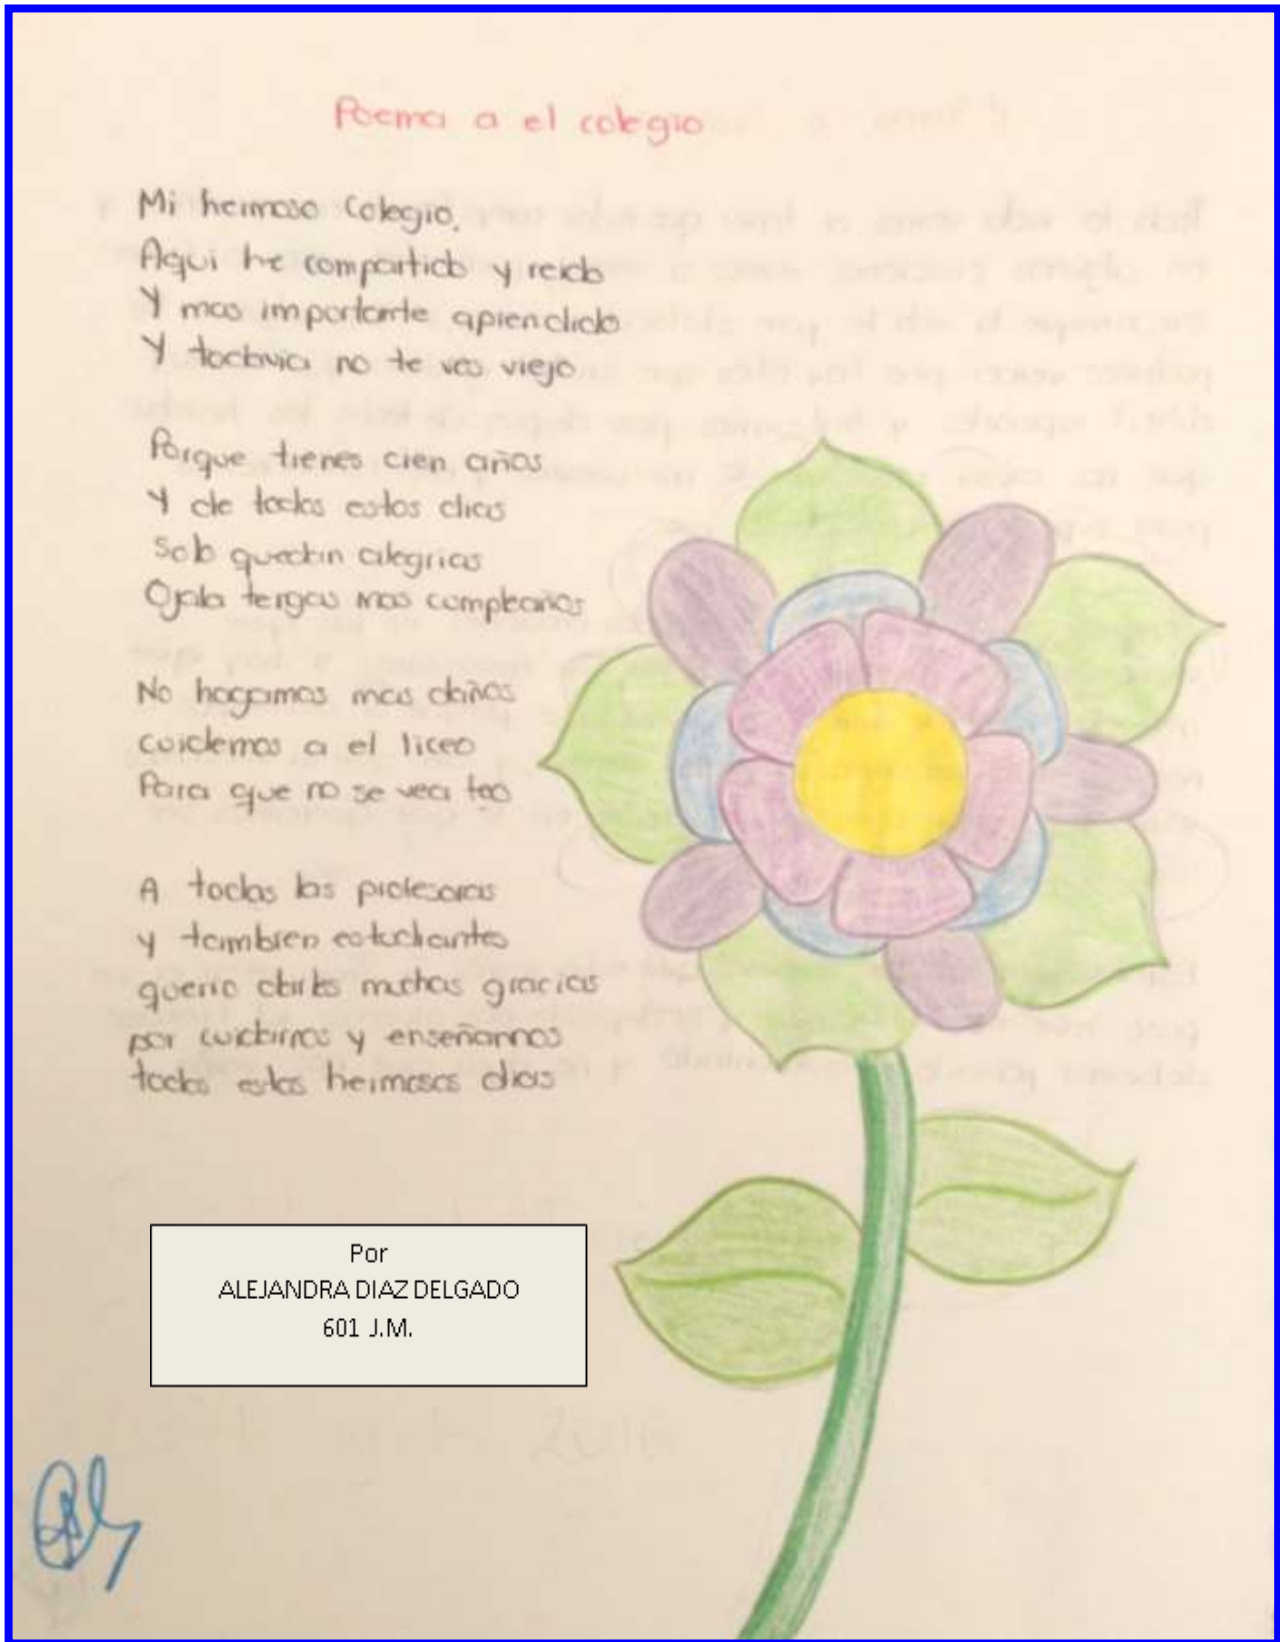 Poema a el colegio
Mi hermoso Colegio,
Aqui he compartido y reido
Y mas importante aprendido
Y todavia no te ves viejo
Porque tienes cien años
Y de todos estos dias
Solo quedan alegrias
Ojala tengas mas compleaños
No hagamos mas daños
cuidemos a el liceo
Para que no se vea feo
A todas las profesoras
y tambien estudiantes
quero darles muchas gracias
por cuidarnos y enseñarnos
todos estos hermosos dias
Por
ALEJANDRA DIAZ DELGADO
601 J.M.